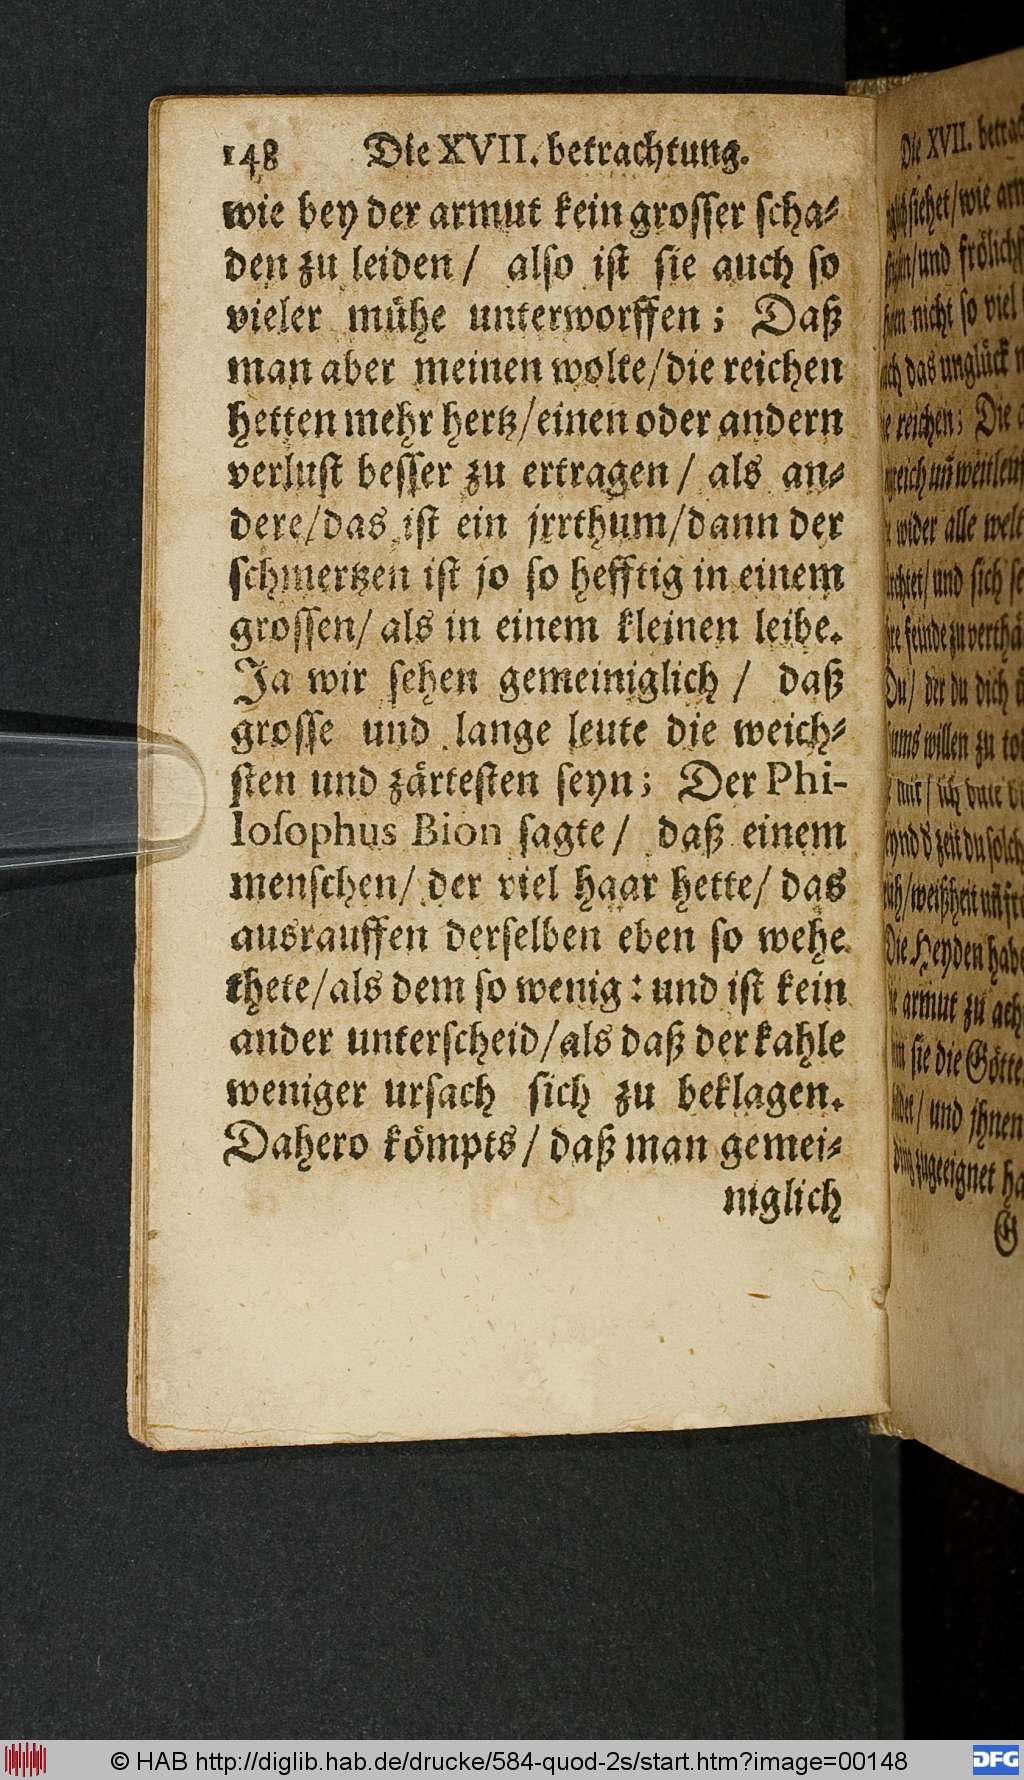 148 Die XVII. betrachtung.
wie bey der armut kein grosser scha-
den zu leiden / also ist sie auch so
vieler mühe unterworffen; Daß
man aber meinen wolte/die reichen
hetten mehr hertz/einen oder andern
verlust besser zu ertragen / als an-
dere/das ist ein jrrthum/dann der
schmertzen ist jo so hefftig in einem
grossen/ als in einem kleinen leibe.
Ja wir sehen gemeiniglich / daß
grosse und lange leute die weich-
sten und zärtesten seyn; Der Phi-
losophus Bion sagte / daß einem
menschen/ der viel haar hette/ das
ausrauffen derselben eben so wehe
thete/als dem so wenig: und ist kein
ander unterscheid/als daß der kahle
weniger ursach sich zu beklagen.
Dahero kömpts / daß man gemei-
niglich
Die XVII.
siehet/wie
/und
nicht so viel
das unglück
reichen; Die
wider alle welt
/und sich
feinde zu
Du/ der du dich
willen zu
zeit du
/weißheit
Die Heyden
armut zu
sie die
/ und jhnen
zugeeignet
G
© HAB http://diglib.hab.de/drucke/584-quod-2s/start.htm?image=00148
DFG